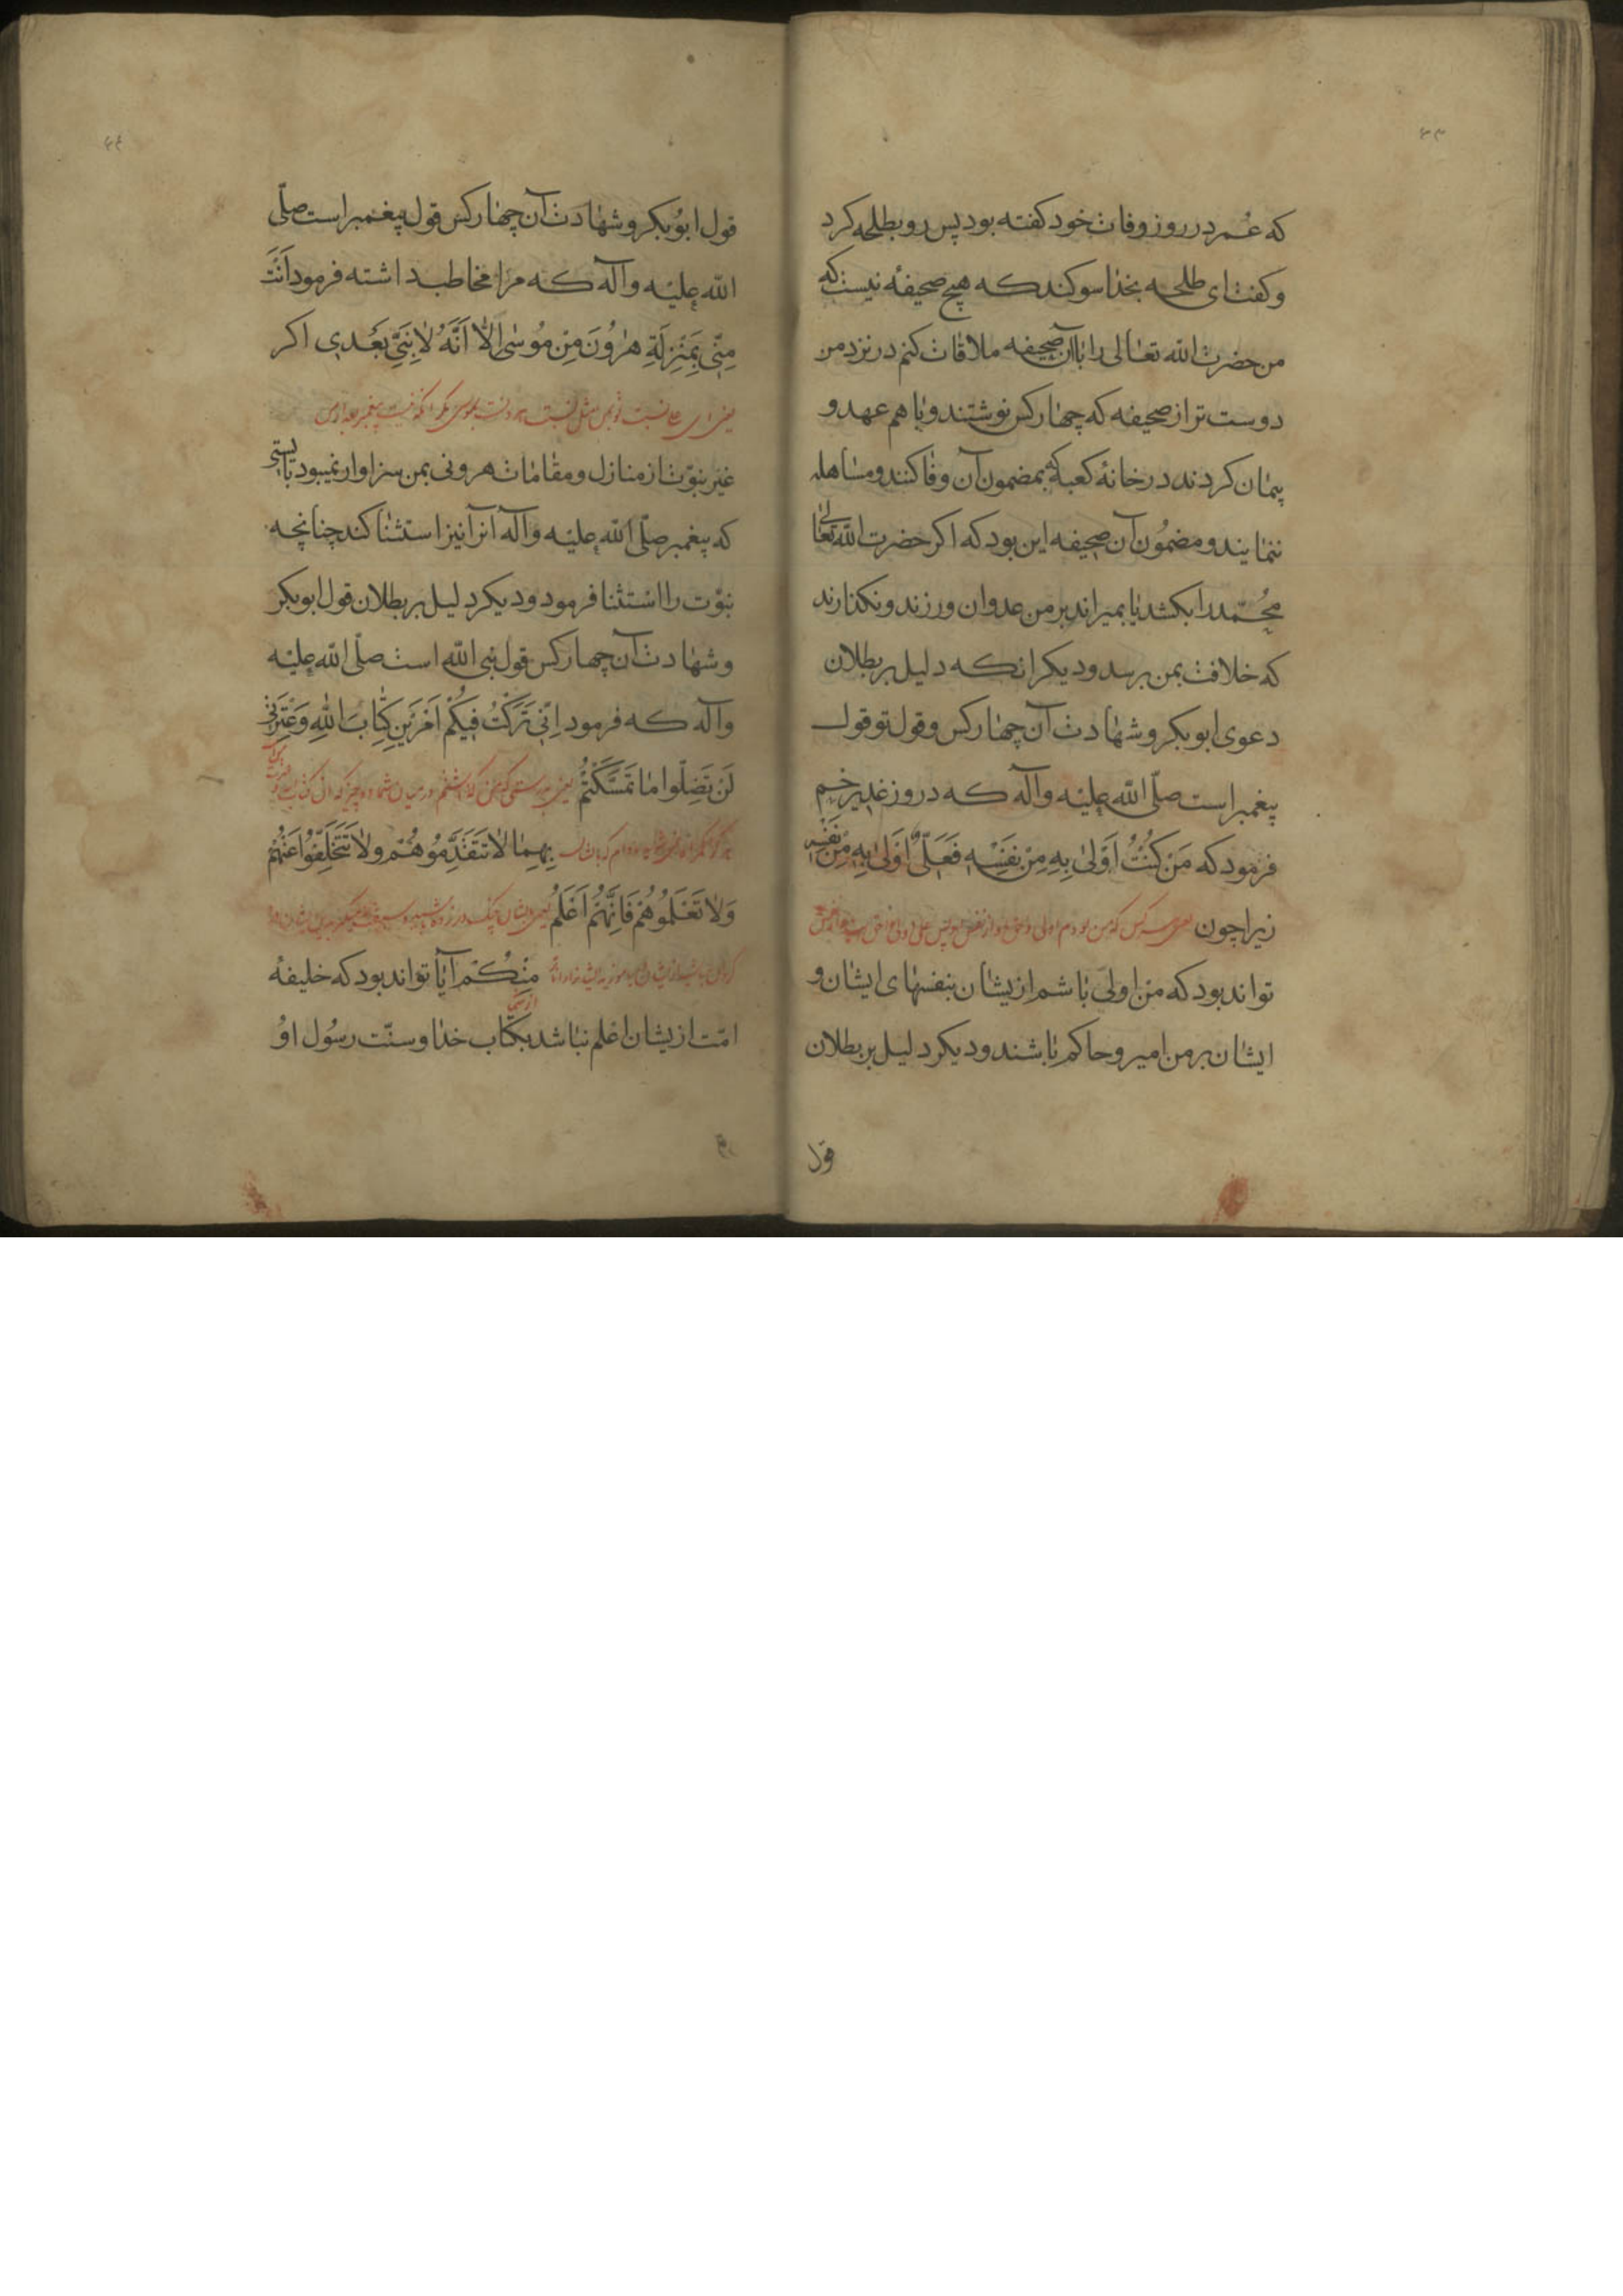 ۴۳
که عُمر در روز وفات خود کفته بود پس رو بطلحه کرد
و کفت ای طلحه بخدا سوکند که هیچ صحیفهٔ نیست که
من حضرت الله تعالی را باآن صحیفه ملاقات کنم در نزد من
دوست تر از صحیفه که چهار کس نوشتند و با هم عهد و
پیمان کردند در خانهٔ کعبه که بمضمون آن وفا کنند و مساهله
ننمایند و مضمُون آن صحیفه این بود که اکر حضرت الله تعالی
محُمّد را بکشد یا بمیراند بر من عدوان ورزند و نکذارند
که خلافت بمن برسد و دیکر انکه دلیل بر بطلان
دعوی ابوبکر و شهادت آن چهار کس و قول تو قول
پیغمبر است صلّی الله علیه وآله که در روز غدیر خم
فرمود که مَنْ کُنْتُ اَوْلیٰ بِهِ مِنْ نَفْسِه فَعَلِیٌّ اَوْلیٰ بِهِ مِنْ نَفْسِه
زیرا چون یعنی هر کس که من بودم اولی از نفس او پس علی اولی
تواند بود که من اولیٰ باشم از یشان بنفسهای ایشان و
ایشان بر من امیر و حاکم باشند و دیکر دلیل بر بطلان
قول
۴۴
قول ابوُبکر و شهادت آن چهار کس قول پیغمبر است صلّی
الله علیه وآله که مرا مخاطب داشته فرمود اَنْتَ
مِنّی بِمَنْزِلَةِ هٰرُونَ مِنْ مُوسٰی اِلّا اَنَّهُ لا نَبِیَّ بَعْدی اکر
یعنی ای علی نسبت تو بمن مثل نسبت هارونست بموسی مکر انکه نیست پیغمبر بعد از من
غیر نبوّت از منازل و مقامات هرونی بمن سزاوار نمیبود بایستی
که پیغمبر صلّی الله علیه وآله آنرا نیز استثنا کند چنانچه
نبوّت را استثنا فرمود و دیکر دلیل بر بطلان قول ابوبکر
و شهادت آن چهار کس قول نبی الله است صلّی الله علیه
وآله که فرمود اِنّی تَرَکْتُ فیکُمْ اَمْرَیْنِ کِتابَ اللهِ وَعِتْرَتی
لَنْ تَضِلّوا ما تَمَسَّکْتُمْ یعنی بدرستی که من کذاشتم در میان شما دو چیز که ان کتاب
بِهِما لا تَتَقَدَّمُوهُمْ وَلا تَتَخَلَّفُوا عَنْهُمْ
وَلا تُعَلِّمُوهُمْ فَاِنَّهُمْ اَعْلَمُ
مِنْکُمْ آیا تواند بود که خلیفهٔ
امّت ازیشان اعلم نباشد بکتاب خدا و سنّت رسُول اوُ